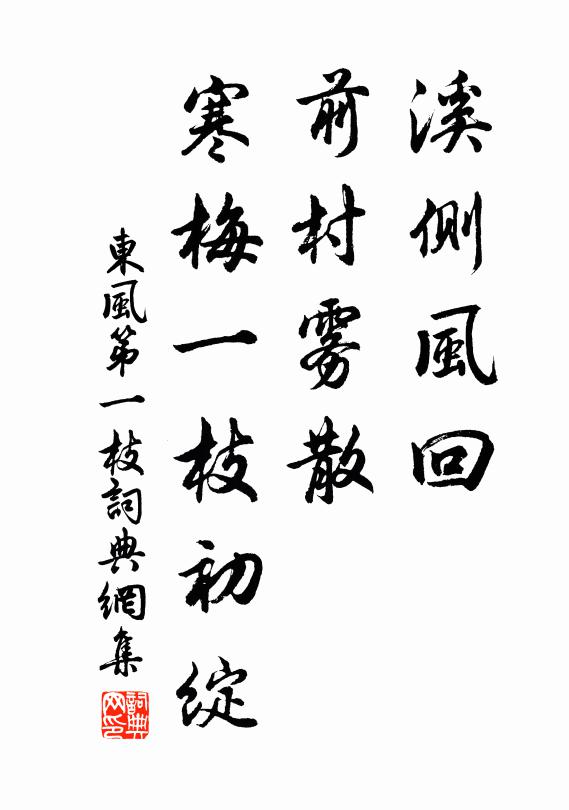 溪側風回
前村雾散
寒梅一枝初綻
東風第一枝詞典網集
詞典网印